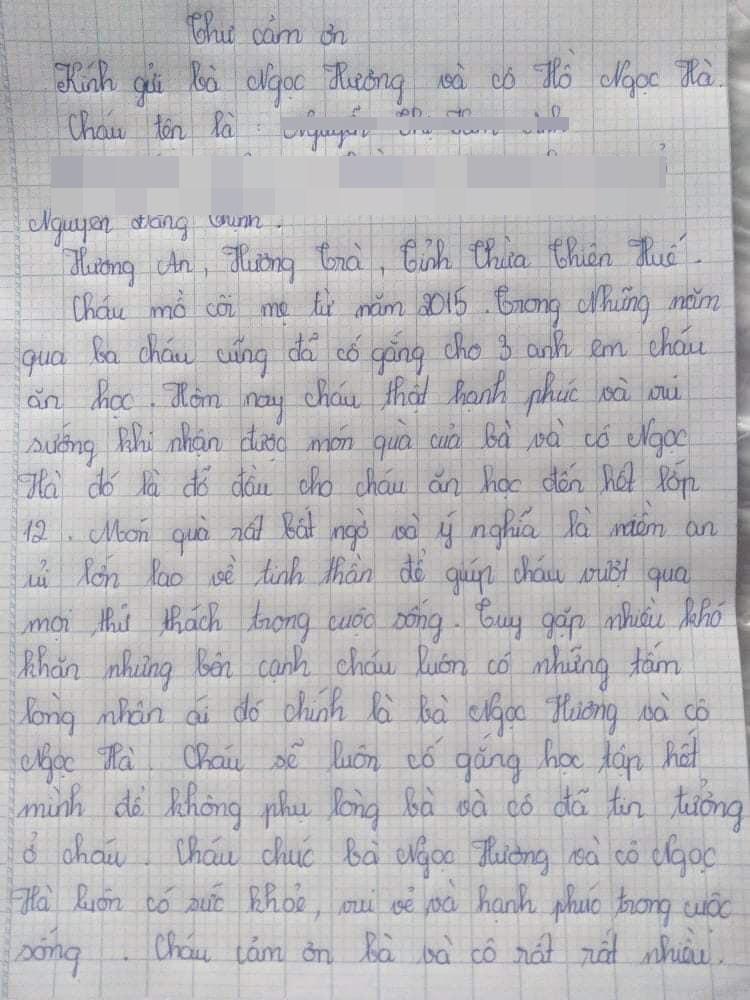 Thư cảm ơn
Kính gửi bà Ngọc Hương và cô Hồ Ngọc Hà.
Cháu tên là : Nguyễn Thị
Nguyen
Hương An, Hương Trà, Tỉnh Thừa Thiên Huế.
Cháu mồ côi mẹ từ năm 2015. Trong Những năm
qua ba cháu cũng đã cố gắng cho 3 anh em cháu
ăn học. Hôm nay cháu thật hạnh phúc và vui
sướng khi nhận được món quà của bà và cô Ngọc
Hà đó là đỡ đầu cho cháu ăn học đến hết lớp
12. Món quà rất bất ngờ và ý nghĩa là niềm an
ủi lớn lao về tinh thần để giúp cháu vượt qua
mọi thử thách trong cuộc sống. Tuy gặp nhiều khó
khăn nhưng bên cạnh cháu luôn có những tấm
lòng nhân ái đó chính là bà Ngọc Hương và cô
Ngọc Hà. Cháu sẽ luôn cố gắng học tập hết
mình để không phụ lòng bà và cô đã tin tưởng
ở cháu. Cháu chúc bà Ngọc Hương và cô Ngọc
Hà luôn có sức khỏe, vui vẻ và hạnh phúc trong cuộc
sống. Cháu cảm ơn bà và cô rất rất nhiều.